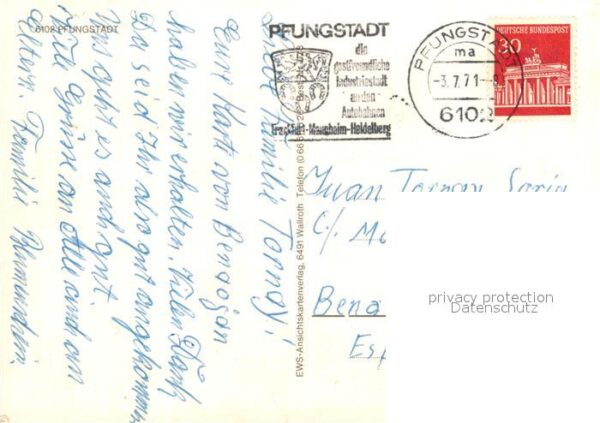 6102 PFUNGSTADT
PFUNGSTADT
die
gastfreundliche
Industriestadt
an den
Autobahnen
Frankfurt-Mannheim-Heidelberg
PFUNGSTADT
ma
-3.7.71-8
6102
DEUTSCHE BUNDESPOST
30
Liebe Familie Tornay!
Eure Karte von Benaojan
haben wir erhalten. Vielen Dank
Da seid Ihr also gut angekommen
Uns geht es auch gut.
Viele Grüße an Alle auch an
Familie Blumenstein
EWS-Ansichtskartenverlag, 6491 Wallroth Telefon (0 66
Juan Tornay Soria
C/. Mo
Bena
Esp
privacy protection
Datenschutz